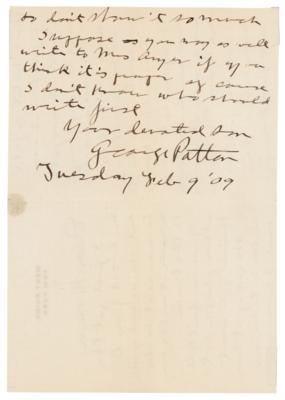 so don't show it so much
Suppose as you may as well
write to Mrs Ayer if you
think it is proper of course
I don't know who should
write first
Your devoted son
George Patton
Tuesday Feb 9 '09